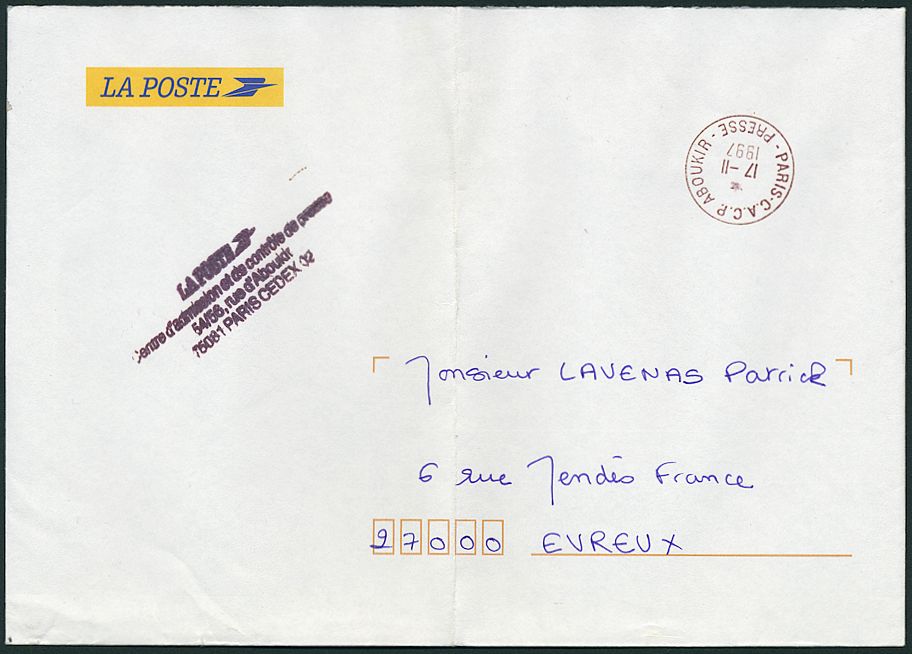 LA POSTE
PARIS-C.A.C.P. ABOUKIR - PRESSE -
17 -11
1997
LA POSTE
Centre d'admission et de contrôle de presse
54/56, rue d'Aboukir
75081 PARIS CEDEX 02
Monsieur LAVENAS Patrick
6 rue Mendès France
27000 EVREUX